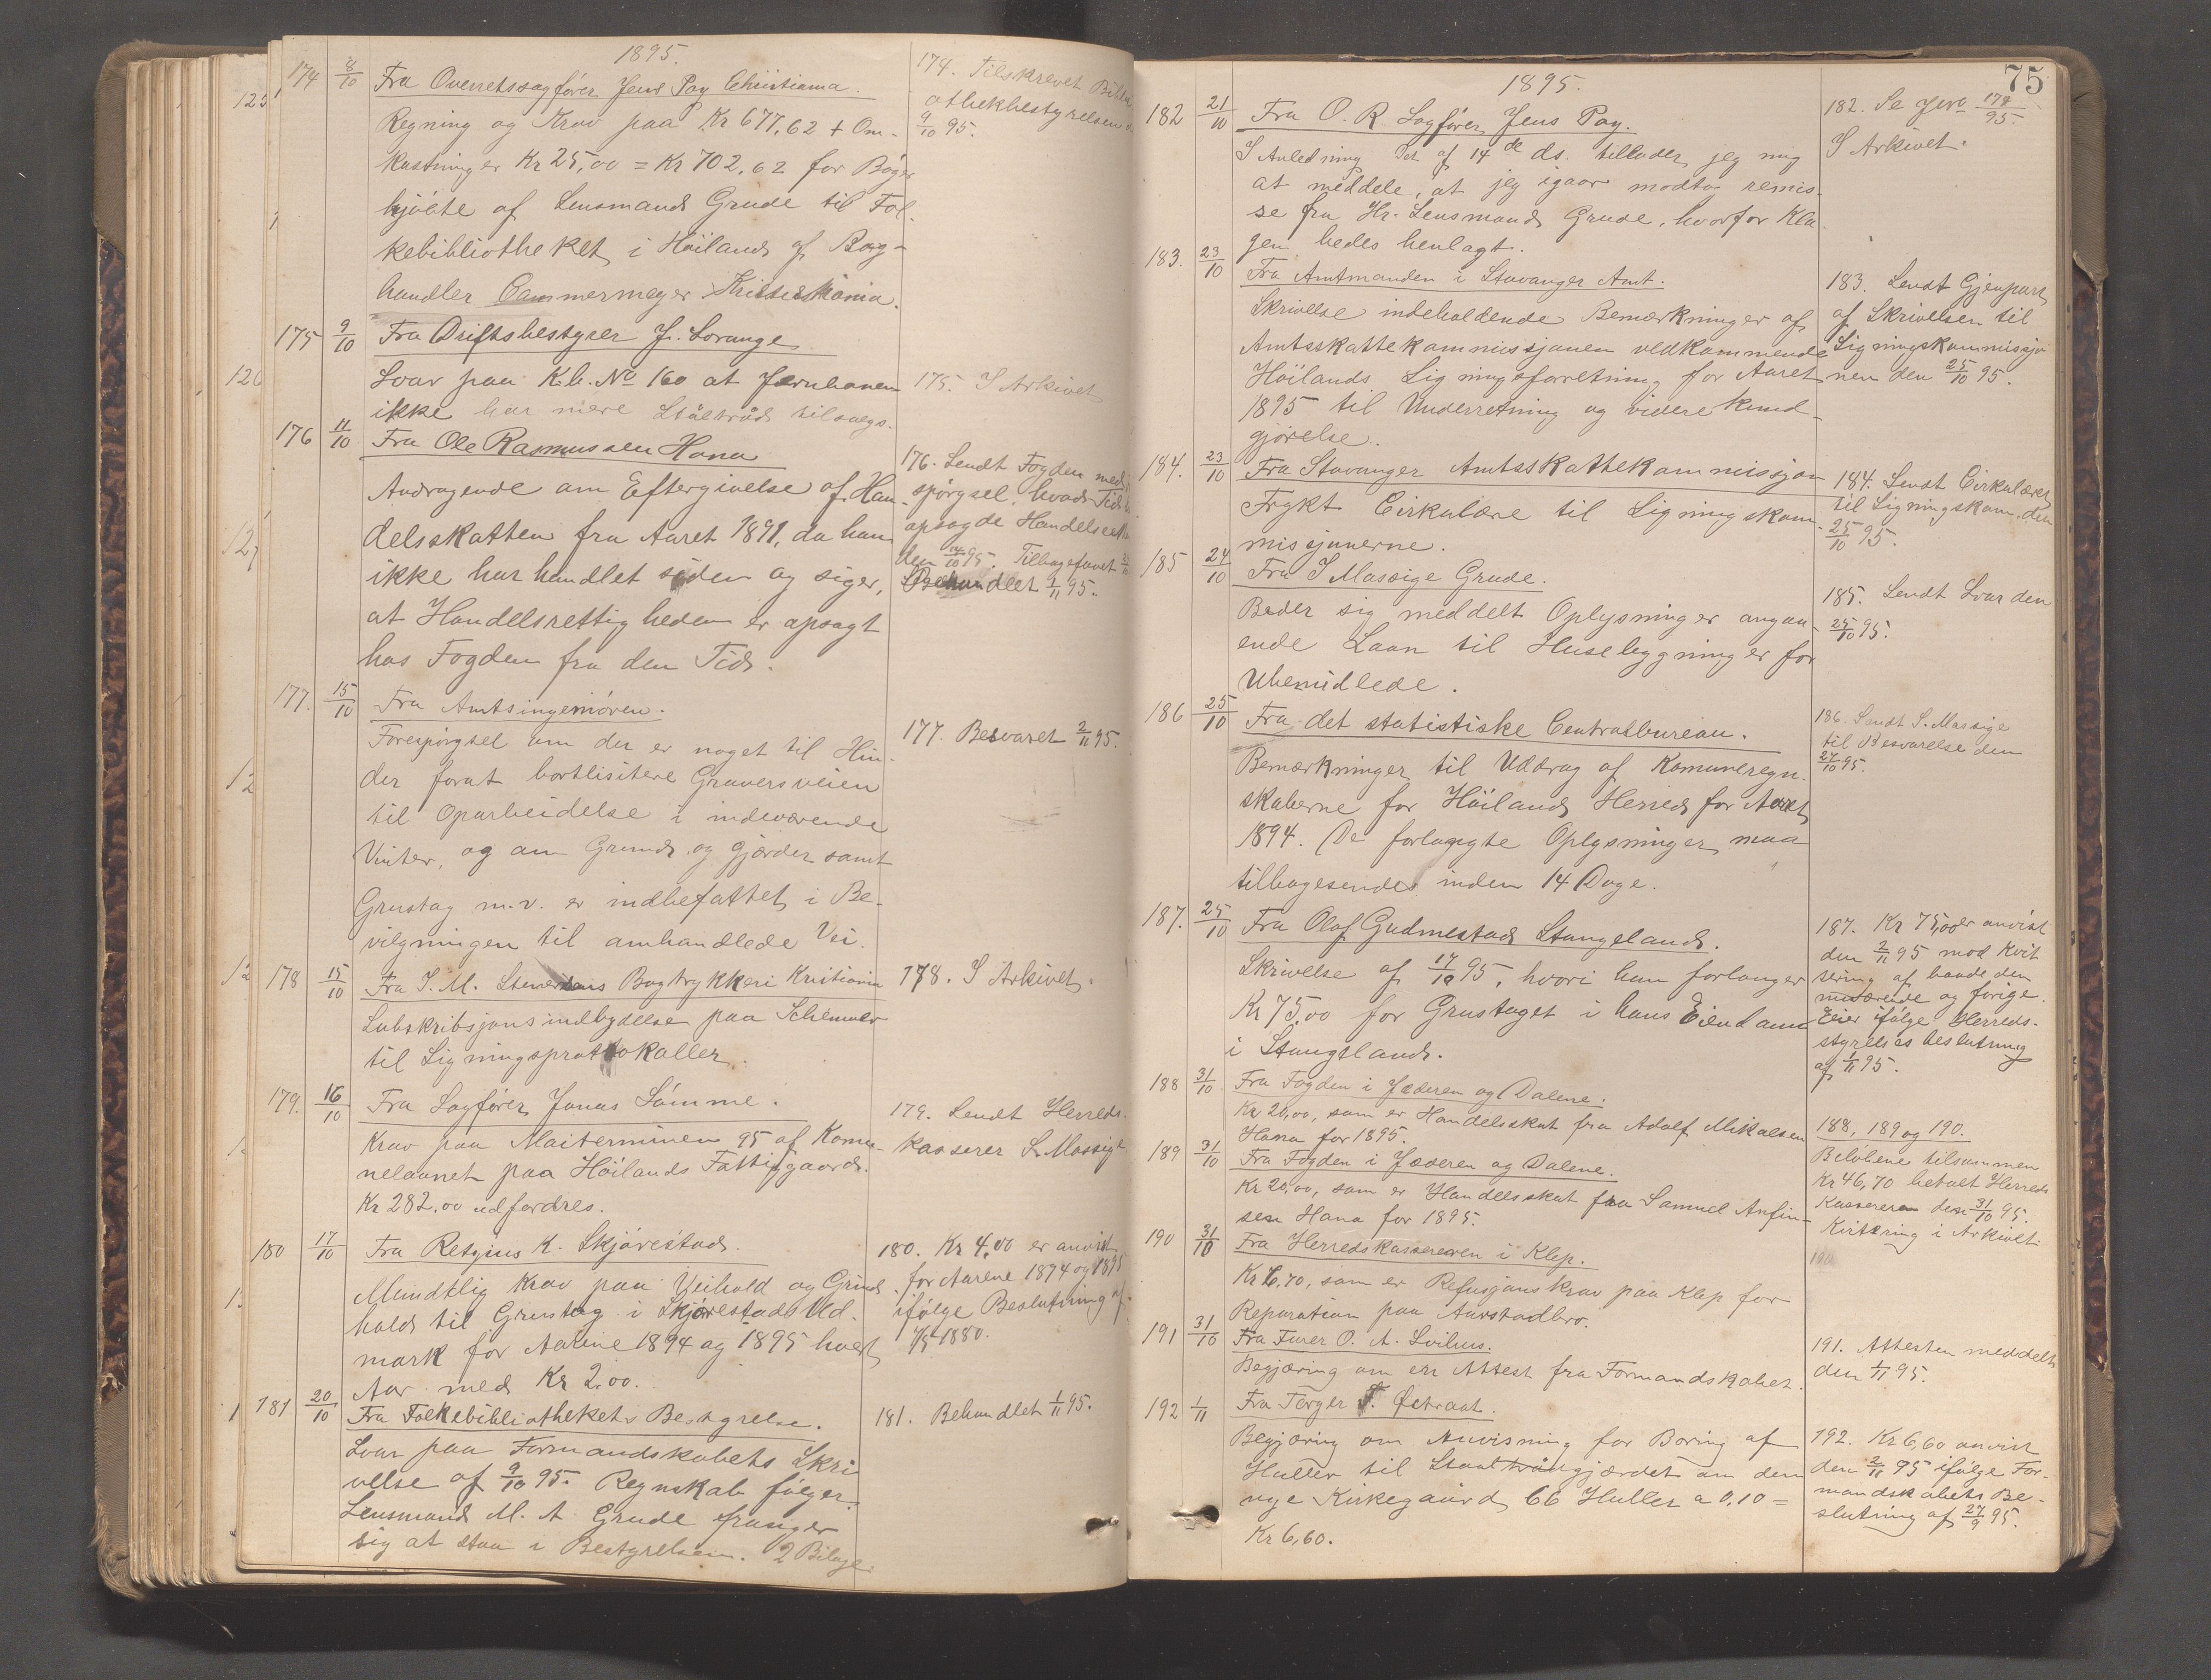 1895.
174 8/10 Fra Overretssagfører Jens Pay Christiania.
Regning og Krav paa Kr 677,62 + Om-
kostninger Kr 25,00 = Kr 702,62 for Bøger
kjøbte af Lensmand Grude til Fol-
kebibliotheket i Höiland af Bog-
handler Cammermeyer Kristiania.
175 9/10 Fra Driftsbestyrer J. Lorange
Svar paa K.b. No 160 at Jernbanen
ikke har mere Ståltråd tilsalgs.
176 11/10 Fra Ole Rasmussen Hana
Andragende om Eftergivelse af Han-
delsskatten fra Aaret 1891, da han
ikke har handlet siden og siger,
at Handelsrettigheden er opsagt
hos Fogden fra den Tid.
177. 15/10 Fra Amtsingeniøren.
Forespørgsel om der er noget til Hin-
der forat bortlisitere Graversveien
til Oparbeidelse i indeværende
Vinter, og om Grund og gjærder samt
Grustag m.v. er indbefattet i Be-
vilgningen til omhandlede Vei.
178 15/10 Fra J. M. Stenersens Bogtrykkeri Kristiania
Subskribsjonsindbydelse paa Schemaer
til Ligningsprottokaller.
179. 16/10 Fra Sagfører Jonas Sømme.
Krav paa Maiterminen 95 af Komu-
nelaanet paa Höilands Fattiggaard.
Kr 282.00 udfordres.
180 17/10 Fra Retgius K. Skjørestad.
Mundtlig Krav paa Veihold og Grind
hold til Grustag i Skjørestads Ud-
mark for Aarene 1894 og 1895 hvert
Aar med Kr 2.00.
181 20/10 Fra Folkebibliothekets Bestyrelse.
Svar paa Formandskabets Skri
velse af 9/10 95. Regnskab følger.
Lensmand M. A. Grude frasiger
sig at staa i Bestyrelsen. 2 Bilage
174. Tilskrevet Bibli
othekbestyrelsen d.
9/10 95.
175. I Arkivet
176. Sendt Fogden med
spørgsel, hvad Tid
opsagde Handelsrett
den 14/10 95. Tilbagesendt
Behandlet 1/11 95.
177. Besvaret 2/11 95.
178. I Arkivet.
179. Sendt Herreds-
kasserer S. Massige
180. Kr 4,00 er anvist
for Aarene 1894 og 1895
ifølge Beslutning af
1880.
181. Behandlet 1/11 95.
75
1895.
182 21/10 Fra O. R. Sagfører Jens Pay.
I Anledning af 14de ds. tillader jeg mig
at meddele, at jeg igaar modtog remis-
se fra Hr. Lensmand Grude, hvorfor Kla
gen bedes henlagt.
183. 23/10 Fra Amtmanden i Stavanger Amt.
Skrivelse indeholdende Bemærkninger af
Amtsskattekommissjonen vedkommende
Höilands Ligningsforretning for Aaret
1895 til Underretning og videre Kund-
gjørelse.
184. 23/10 Fra Stavanger Amtsskattekommissjon
Trykt Cirkulære til Ligningskom-
missjonerne.
185 24/10 Fra S Massige Grude.
Beder sig meddelt Oplysninger angaa-
ende Laan til Husebygninger for
Ubemidlede.
186 25/10 Fra det statistiske Centralbureau.
Bemærkninger til Uddrag af Komuneregn-
skaberne for Höiland Herred for Aaret
1894. De forlangte Oplysninger maa
tilbagesendes inden 14 Dage.
187. 25/10 Fra Olaf Gudmestad Stangeland.
Skrivelse af 17/10 95, hvori han forlanger
Kr 75,00 for Grustaget i hans Eiendom
i Stangeland.
188 31/10 Fra Fogden i Jæderen og Dalene.
Kr 20,00, som er Handelsskat fra Adolf Mikalsen
Hana for 1895.
189 31/10 Fra Fogden i Jæderen og Dalene.
Kr 20,00, som er Handelsskat fra Samuel Anfin-
sen Hana for 1895.
190 31/10 Fra Herredskassereren i Klep.
Kr 6,70, som er Refusjonskrav paa Klep for
Reparation paa Aarstadbro.
191 31/10 Fra Furer O. A. Svihus.
Begjæring om en Attest fra Formandskabet.
192 1/11 Fra Torger T. Østraat.
Begjæring om Anvisning for Boring af
Huller til Staaltrådgjærdet om den
nye Kirkegaard, 66 Huller a 0,10 =
Kr 6,60.
182. Se Jevn 178/95.
I Arkivet.
183. Sendt Gjenpart
af Skrivelsen til
Ligningskommissjo
nen den 25/10 95.
184. Sendt Cirkulæret
til Ligningskom. den
25/10 95.
185. Sendt Svar den
25/10 95.
186. Sendt S. Massige
til Besvarelse den
27/10 95.
187. Kr 75,00 er anvist
den 2/11 95 mod Kvit
tering af baade den
nuværende og forige
Eier ifølge Herreds-
styrelses beslutning
af 1/11 95.
188, 189 og 190.
Beløbene tilsammen
Kr 46,70 betalt Herreds
Kassereren den 31/10 95.
Kvittering i Arkivet.
190
191. Attesten meddelt
den 1/11 95.
192. Kr 6,60 anvist
den 2/11 95 ifølge For-
mandskabets Be-
slutning af 27/9 95.